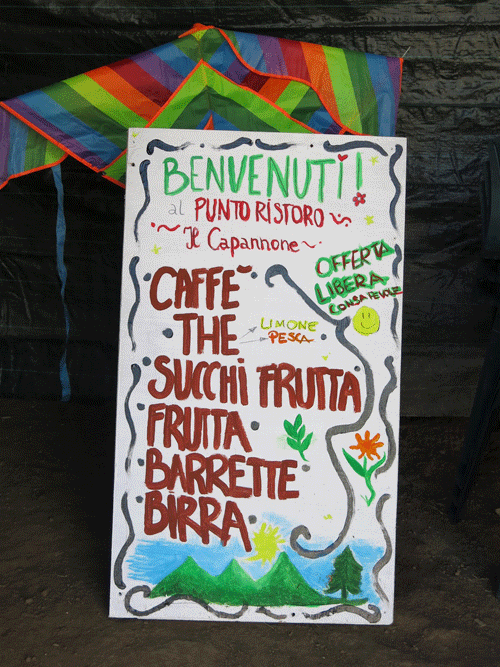 BENVENUTI!
al PUNTO RISTORO
~ Il Capannone ~
OFFERTA
LIBERA
CONSAPEVOLE
CAFFE~
THE
LIMONE
PESCA
SUCCHI FRUTTA
FRUTTA
BARRETTE
BIRRA